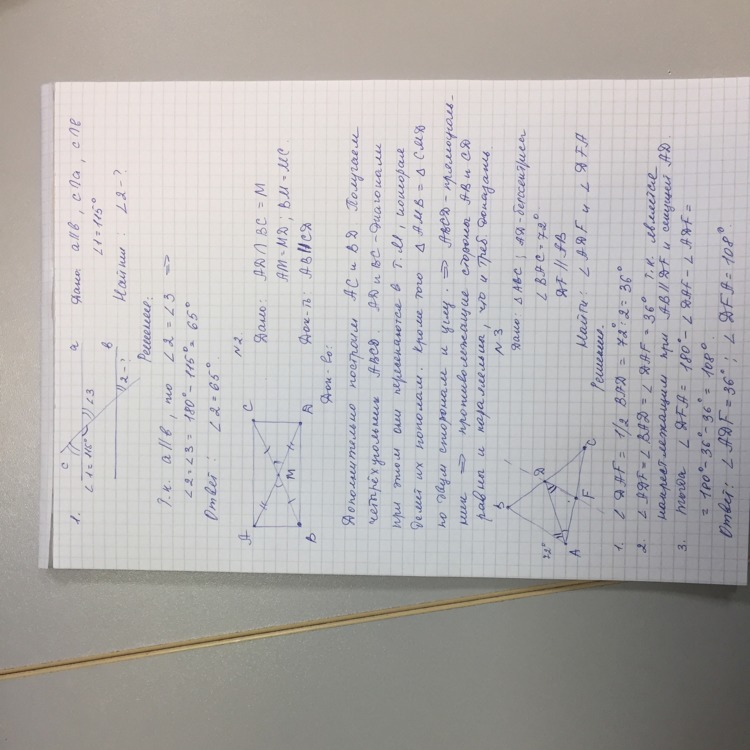 1.
Дано a∥b, c∩a, c∩b
∠1=115°
Найти: ∠2-?
c
a
∠1=115°
∠3
b
2-?
Решение:
Т.к. a∥b, то ∠2=∠3 ⇒
∠2=∠3=180°-115°=65°
Ответ: ∠2=65°
N2.
A
C
M
B
D
Дано: AD∩BC=M
AM=MD; BM=MC.
Док-ть AB∥CD
Док-во:
Дополнительно построим AC и BD Получаем
четырёхугольник ABCD. AD и BC-диагонали
при этом они пересекаются в т.M, которая
делит их пополам. Кроме того △AMB=△CMD
по двум сторонам и углу. ⇒ ABCD-прямоуголь-
ник ⇒ противолежащие стороны AB и CD
равны и параллельны, что и треб. доказать.
N3
B
D
72°
A
F
C
Дано: △ABC; AD-биссектриса
∠BAC=72°
DF∥AB
Найти: ∠ADF и ∠DFA
Решение.
1. ∠DAF=1/2 BAD=72°:2=36°
2. ∠ADF=∠BAD=∠DAF=36° т.к. является
накрест лежащим при AB∥DF и секущей AD.
3. Тогда ∠DFA=180°-∠DAF-∠ADF=
=180°-36°-36°=108°
Ответ: ∠ADF=36°; ∠DFA=108°